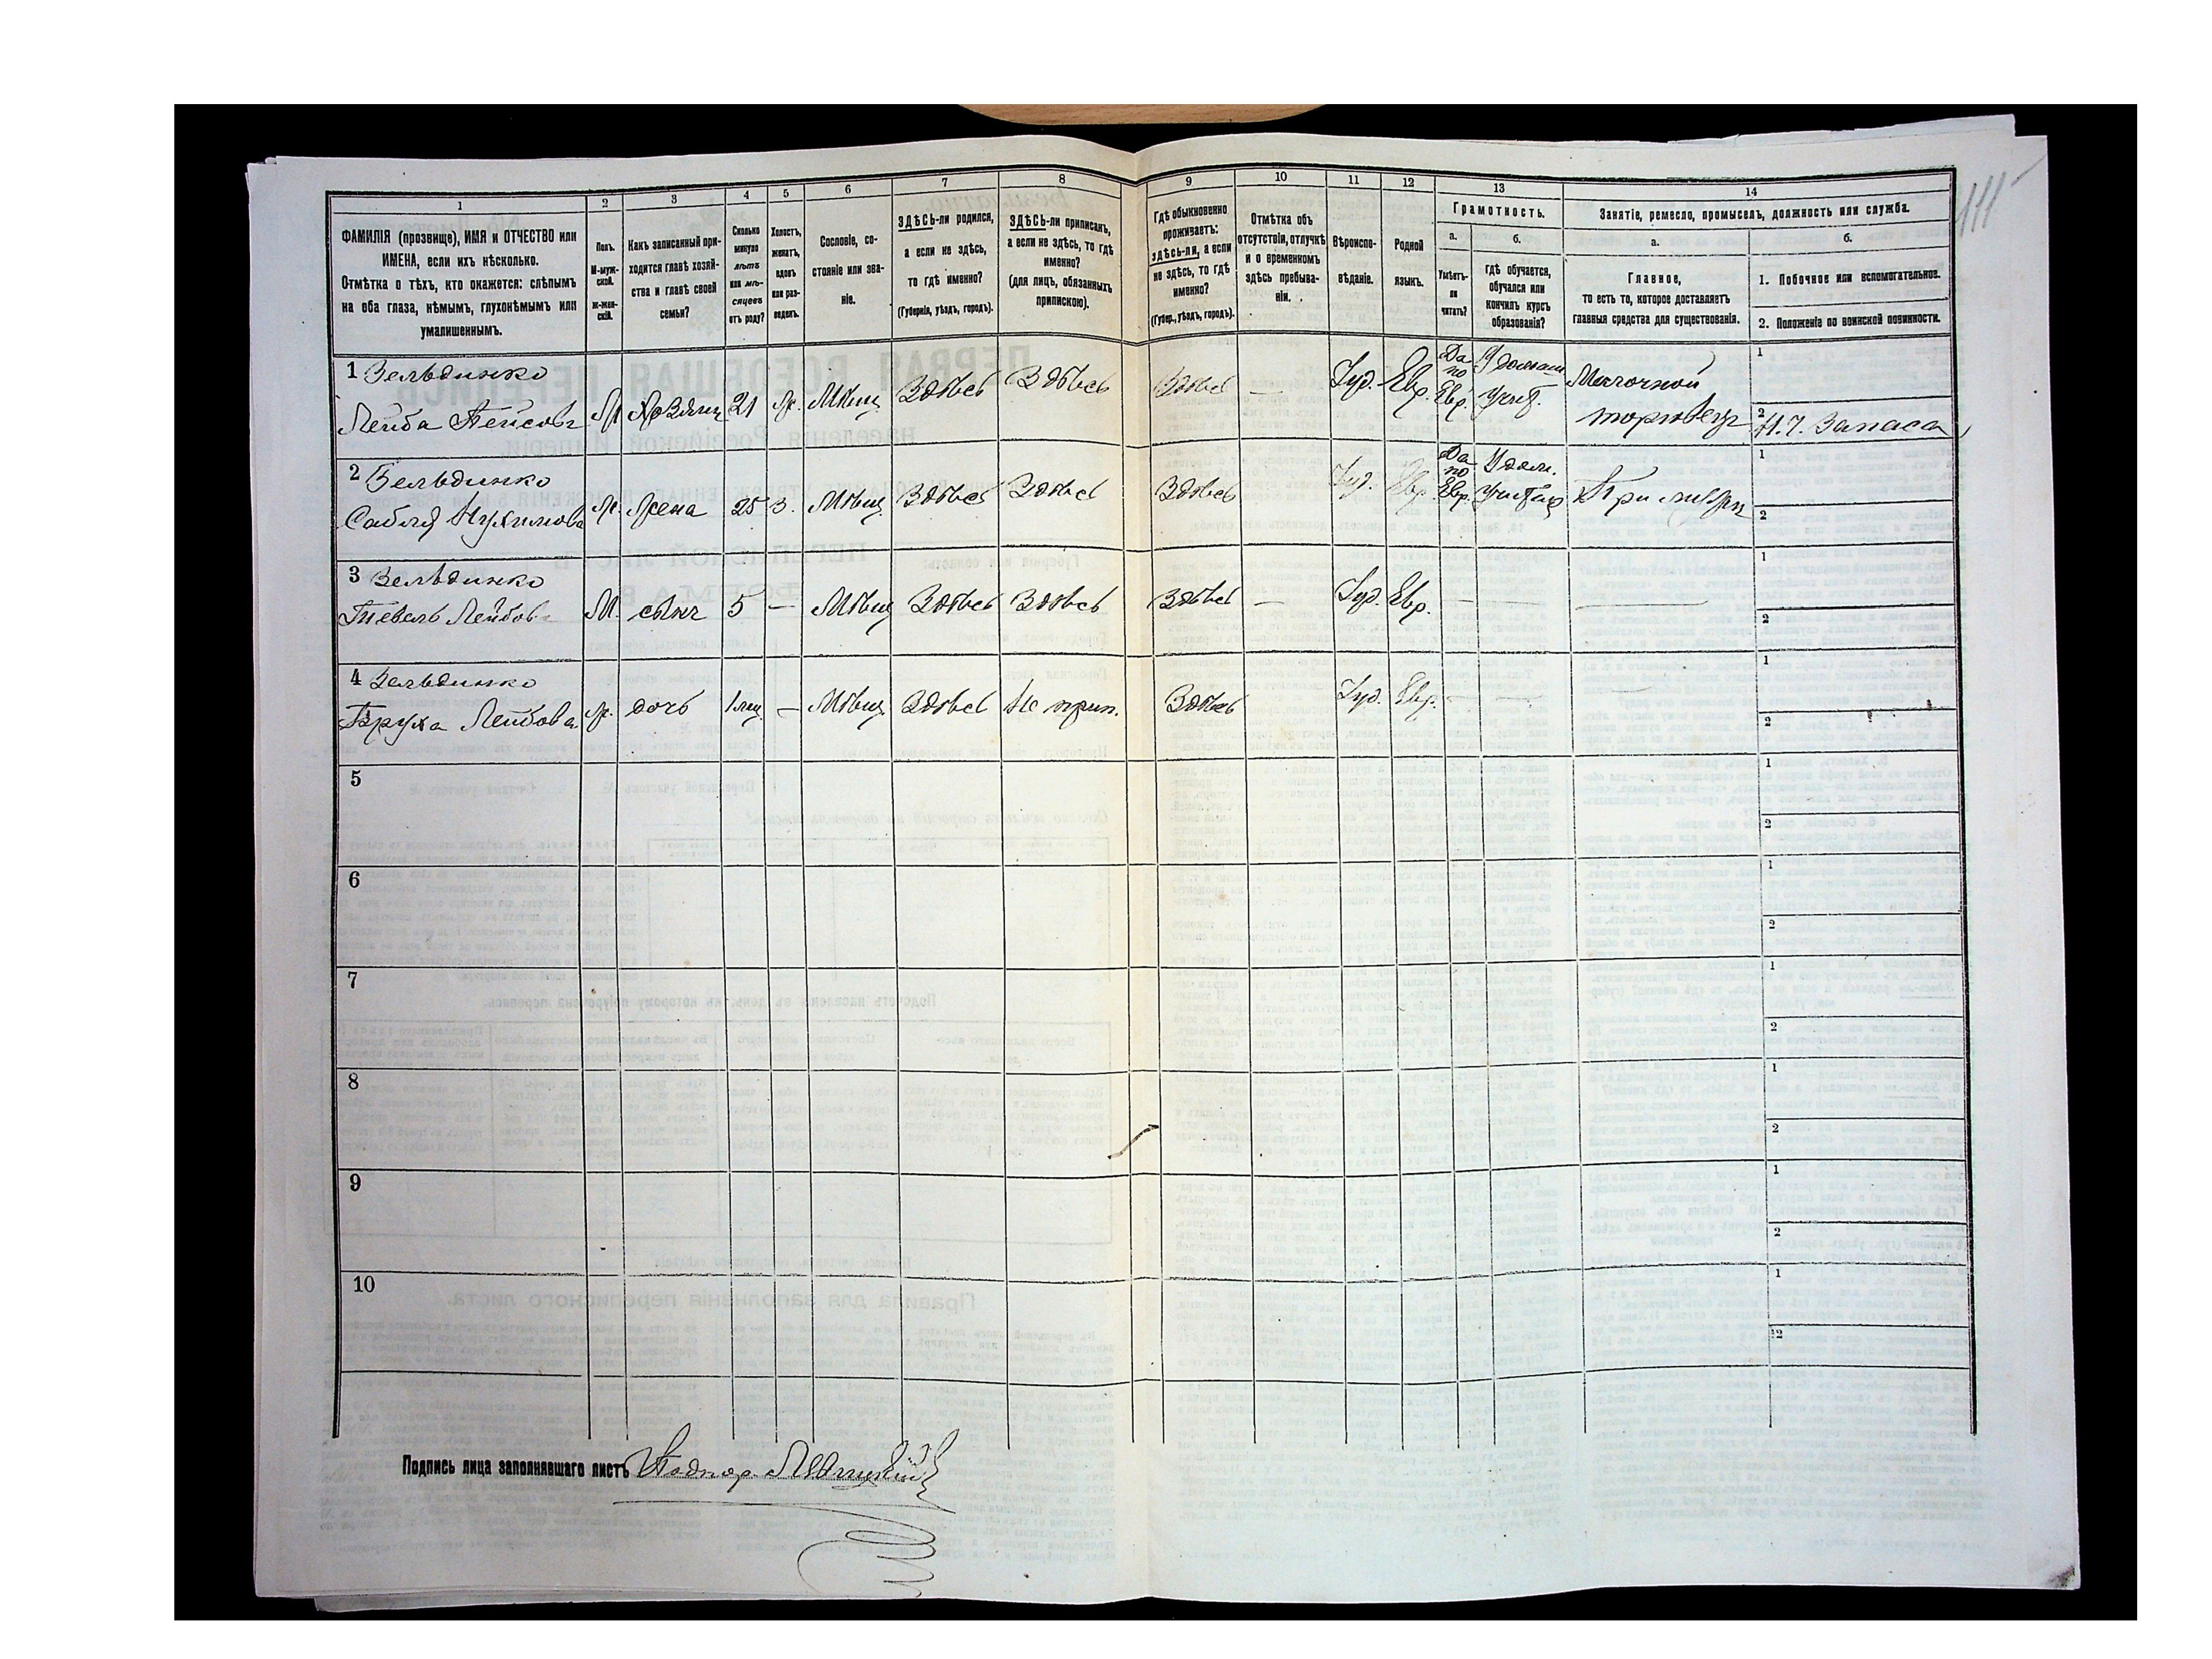 1 2 3 4 5 6 7 8 9 10 11 12 13 14
ФАМИЛІЯ (прозвище), ИМЯ и ОТЧЕСТВО или
ИМЕНА, если ихъ нѣсколько.
Отмѣтка о тѣхъ, кто окажется: слѣпымъ
на оба глаза, нѣмымъ, глухонѣмымъ или
умалишеннымъ.
Полъ.
М-муж-
ской.
Ж-жен-
скій.
Какъ записанный при-
ходится главѣ хозяй-
ства и главѣ своей
семьи?
Сколько
минуло
лѣтъ
или мѣ-
сяцевъ
отъ роду?
Холостъ,
женатъ,
вдовъ
или раз-
веденъ.
Сословіе, со-
стояніе или зва-
ніе.
ЗДѢСЬ-ли родился,
а если не здѣсь,
то гдѣ именно?
(Губернія, уѣздъ, городъ).
ЗДѢСЬ-ли приписанъ,
а если не здѣсь, то гдѣ
именно?
(для лицъ, обязанныхъ
припискою).
Гдѣ обыкновенно
проживаетъ:
здѣсь-ли, а если
не здѣсь, то гдѣ
именно?
(Губер., уѣздъ, городъ).
Отмѣтка объ
отсутствіи, отлучкѣ
и о временномъ
здѣсь пребыва-
ніи.
Вѣроиспо-
вѣданіе.
Родной
языкъ.
Грамотность.
а.
Умѣетъ-
ли
читать?
б.
гдѣ обучается,
обучался или
кончилъ курсъ
образованія?
Занятіе, ремесло, промыселъ, должность или служба.
а.
Главное,
то есть то, которое доставляетъ
главныя средства для существованія.
б.
1. Побочное или вспомогательное.
2. Положеніе по воинской повинности.
111
1 Зельдинко
Лейба Пейсовъ М Хозяинъ 21 Ж. Мѣщ. Здѣсь Здѣсь Здѣсь — Іуд. Евр. Да по Евр. У домашн. учит. Мелочной торговецъ
1
2 Н. Ч. Запаса
2 Зельдинко
Нухимова Ж. Жена 25 З. Мѣщ. Здѣсь Здѣсь Здѣсь Іуд. Евр. Да по Евр. У дом. учителя При мужѣ
1
2
3 Зельдинко
Тевель Лейбовъ М. сынъ 5 — Мѣщ. Здѣсь Здѣсь Здѣсь — Іуд. Евр. — — —
1
2
4 Зельдинко
Бруха Лейбова Ж. дочь 1 мц. — Мѣщ. Здѣсь Не прип. Здѣсь Іуд. Евр. — — —
1
2
5
1
2
6
1
2
7
1
2
8
1
2
9
1
2
10
1
2
Подпись лица заполнявшаго листъ